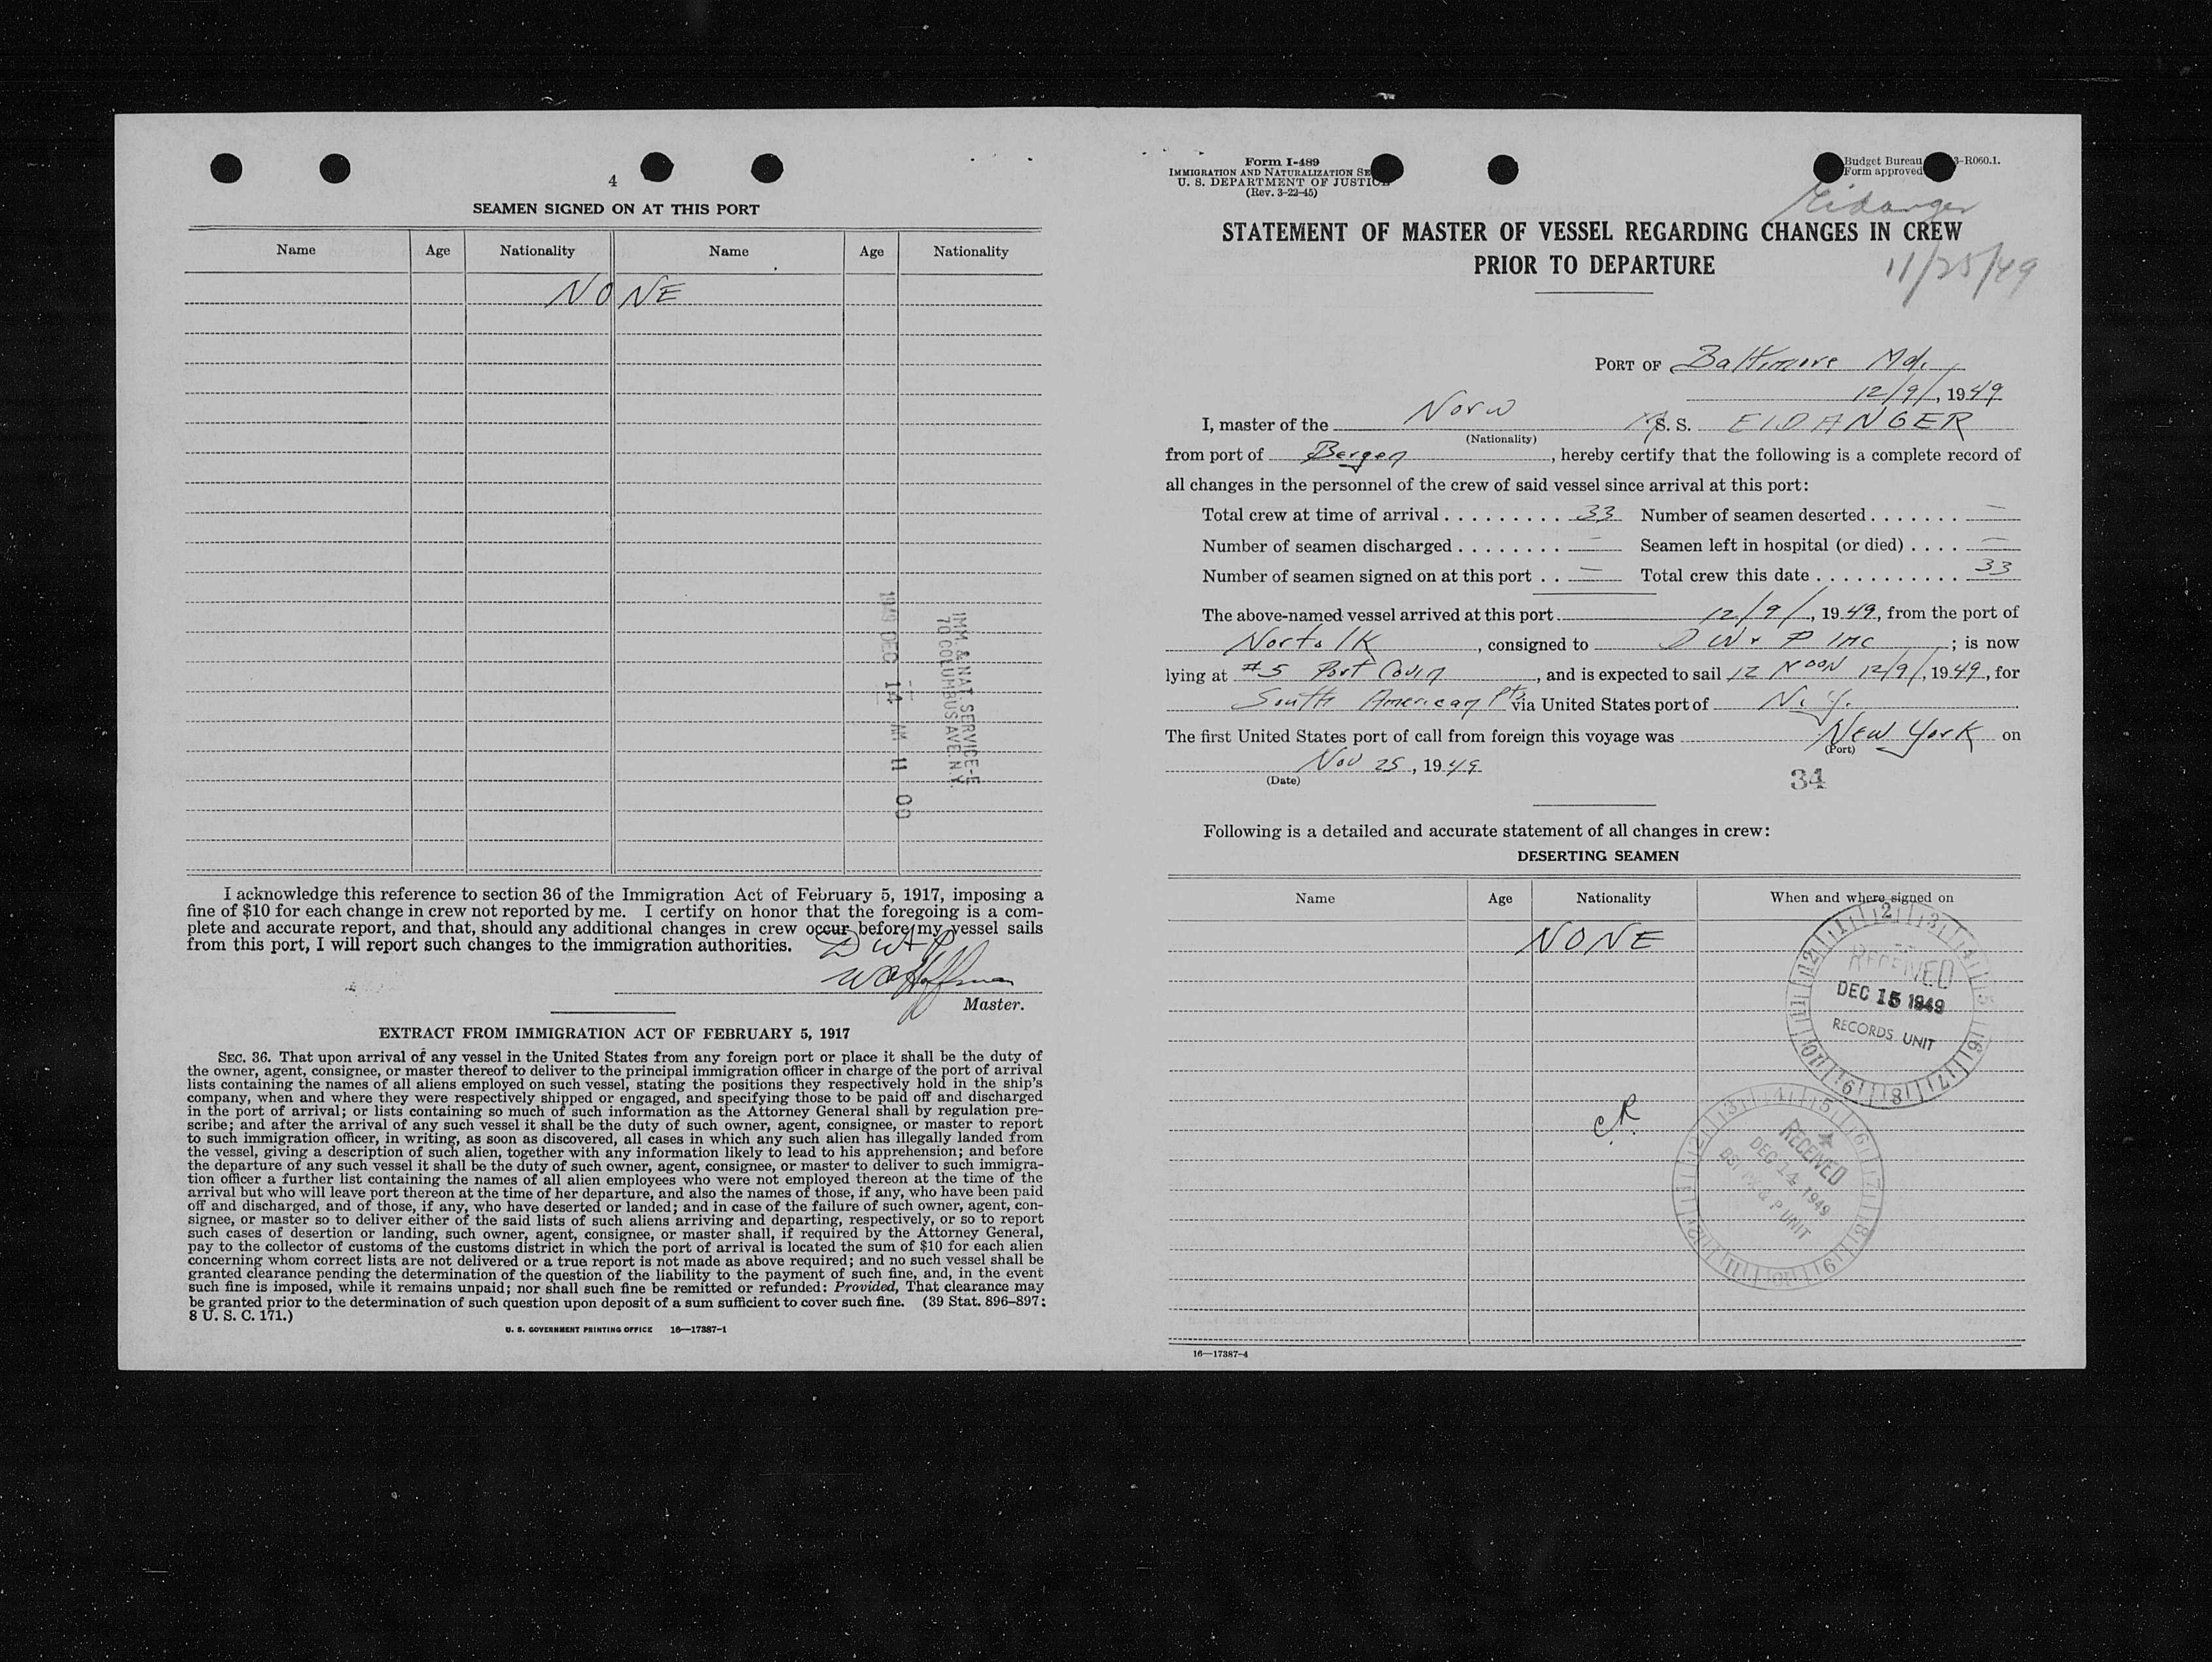 4
SEAMEN SIGNED ON AT THIS PORT
Name Age Nationality Name Age Nationality
NONE
IMM. & NAT. SERVICE-E
70 COLUMBUS AVE. N.Y.
DEC 14 AM 11 00
I acknowledge this reference to section 36 of the Immigration Act of February 5, 1917, imposing a
fine of $10 for each change in crew not reported by me. I certify on honor that the foregoing is a com-
plete and accurate report, and that, should any additional changes in crew occur before my vessel sails
from this port, I will report such changes to the immigration authorities.
Master.
EXTRACT FROM IMMIGRATION ACT OF FEBRUARY 5, 1917
SEC. 36. That upon arrival of any vessel in the United States from any foreign port or place it shall be the duty of
the owner, agent, consignee, or master thereof to deliver to the principal immigration officer in charge of the port of arrival
lists containing the names of all aliens employed on such vessel, stating the positions they respectively hold in the ship's
company, when and where they were respectively shipped or engaged, and specifying those to be paid off and discharged
in the port of arrival; or lists containing so much of such information as the Attorney General shall by regulation pre-
scribe; and after the arrival of any such vessel it shall be the duty of such owner, agent, consignee, or master to report
to such immigration officer, in writing, as soon as discovered, all cases in which any such alien has illegally landed from
the vessel, giving a description of such alien, together with any information likely to lead to his apprehension; and before
the departure of any such vessel it shall be the duty of such owner, agent, consignee, or master to deliver to such immigra-
tion officer a further list containing the names of all alien employees who were not employed thereon at the time of the
arrival but who will leave port thereon at the time of her departure, and also the names of those, if any, who have been paid
off and discharged, and of those, if any, who have deserted or landed; and in case of the failure of such owner, agent, con-
signee, or master so to deliver either of the said lists of such aliens arriving and departing, respectively, or so to report
such cases of desertion or landing, such owner, agent, consignee, or master shall, if required by the Attorney General,
pay to the collector of customs of the customs district in which the port of arrival is located the sum of $10 for each alien
concerning whom correct lists are not delivered or a true report is not made as above required; and no such vessel shall be
granted clearance pending the determination of the question of the liability to the payment of such fine, and, in the event
such fine is imposed, while it remains unpaid; nor shall such fine be remitted or refunded: Provided, That clearance may
be granted prior to the determination of such question upon deposit of a sum sufficient to cover such fine. (39 Stat. 896–897;
8 U. S. C. 171.)
U. S. GOVERNMENT PRINTING OFFICE 16—17387-1
Form I-489
IMMIGRATION AND NATURALIZATION
U. S. DEPARTMENT OF JUSTICE
(Rev. 3-22-45)
Budget Bureau 3-R060.1.
Form approved
Eidanger
STATEMENT OF MASTER OF VESSEL REGARDING CHANGES IN CREW
PRIOR TO DEPARTURE
11/25/49
PORT OF Baltimore Md.
12/9/, 1949
I, master of the Norw S. S. EIDANGER
(Nationality)
from port of Bergen, hereby certify that the following is a complete record of
all changes in the personnel of the crew of said vessel since arrival at this port:
Total crew at time of arrival . . . . . . . . . 33 Number of seamen deserted . . . . . . . —
Number of seamen discharged . . . . . . . . — Seamen left in hospital (or died) . . . . —
Number of seamen signed on at this port . . — Total crew this date . . . . . . . . . . . . 33
The above-named vessel arrived at this port 12/9/, 1949, from the port of
Norfolk, consigned to D W & P INC; is now
lying at #5 Port Covin, and is expected to sail 12 NOON 12/9/, 1949, for
South American Pts. via United States port of N. Y.
The first United States port of call from foreign this voyage was New York on
(Port)
Nov 25, 1949
(Date)
34
Following is a detailed and accurate statement of all changes in crew:
DESERTING SEAMEN
Name Age Nationality When and where signed on
NONE
RECEIVED
DEC 15 1949
RECORDS UNIT
CR
RECEIVED
DEC 14 1949
P UNIT
16—17387-4